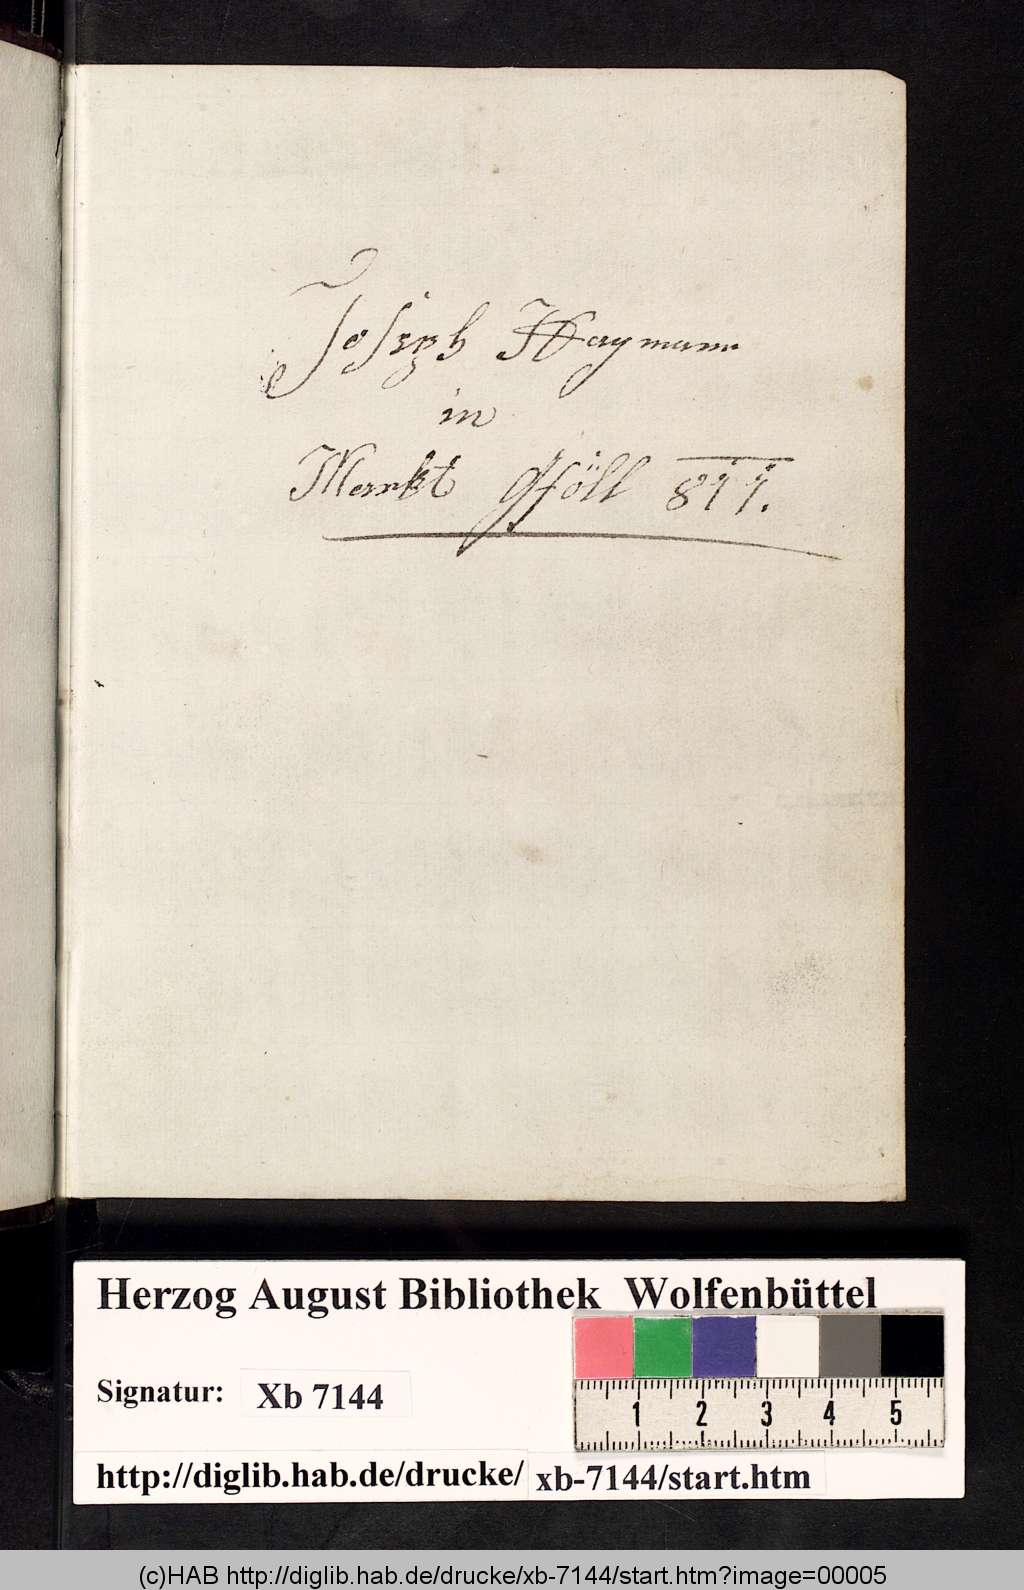 Joseph Haymann
in
Markt Gföll 811.
Herzog August Bibliothek Wolfenbüttel
Signatur: Xb 7144
1 2 3 4 5
http://diglib.hab.de/drucke/ xb-7144/start.htm
(c)HAB http://diglib.hab.de/drucke/xb-7144/start.htm?image=00005